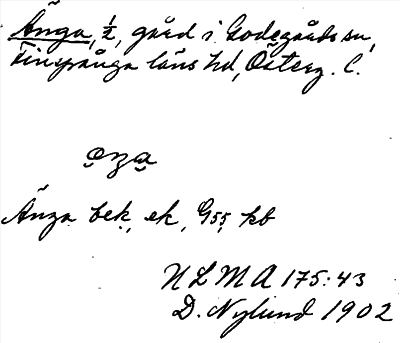 Änga, ½, gård i Godegårds sn,
Finspånga läns hd, Österg. L.
Änga bek, ek, G55 kb
N L M A 175:43
D. Nylund 1902